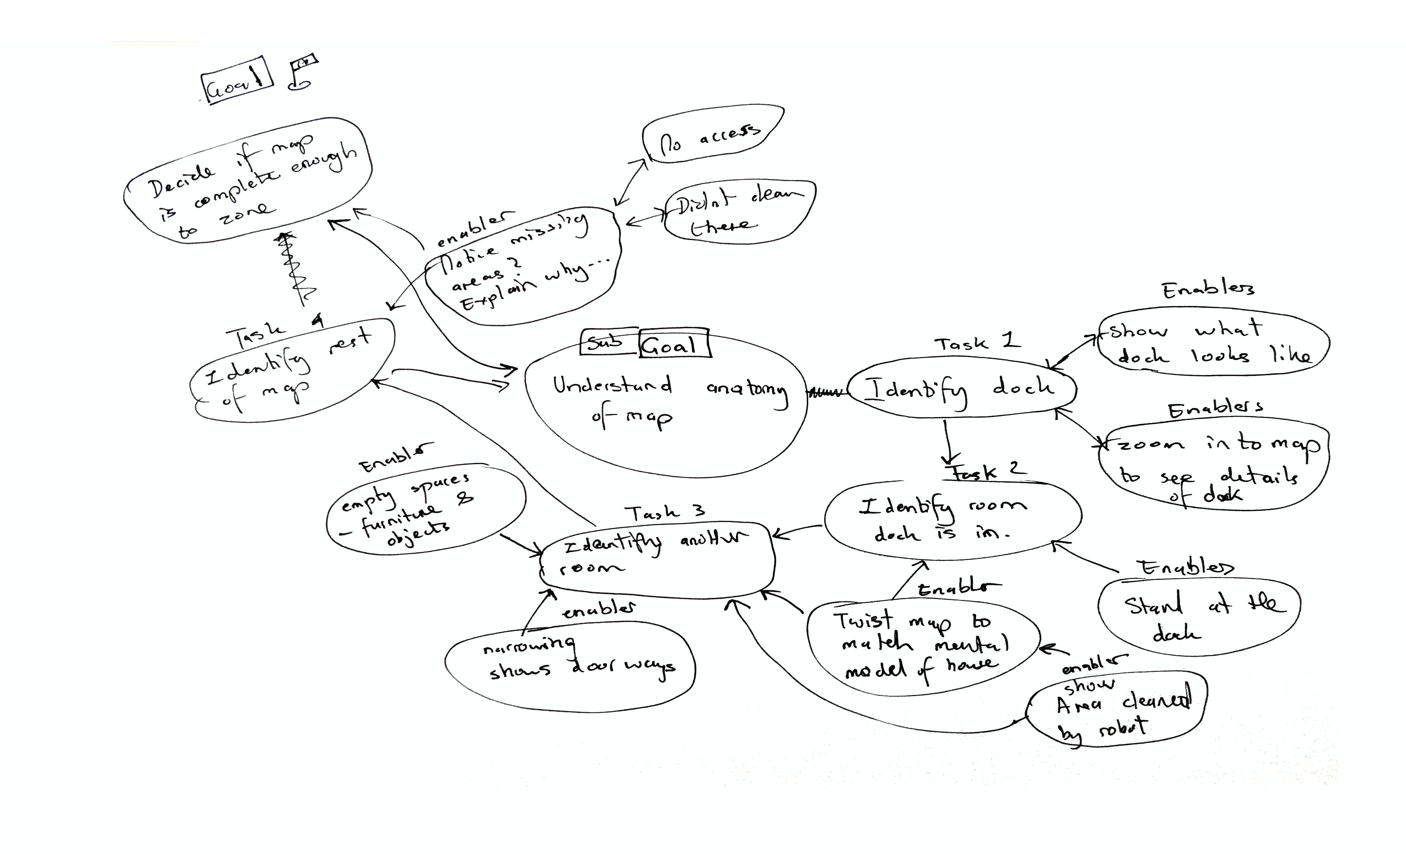 Goal
Decide if map
is complete enough
to zone
No access
Didnt clean
there
enabler
Notice missing
areas?
Explain why...
Task 4
Identify rest
of map
Sub Goal
Understand anatomy
of map
Task 1
Identify dock
Enablers
Show what
dock looks like
Enablers
zoom in to map
to see details
of dock
Task 2
Identify room
dock is in.
Enablers
Stand at the
dock
Enabler
empty spaces
- furniture &
objects
Task 3
Identifty another
room
enabler
narrowing
shows doorways
Enabler
Twist map to
match mental
model of house
enabler
show
Area cleaned
by robot